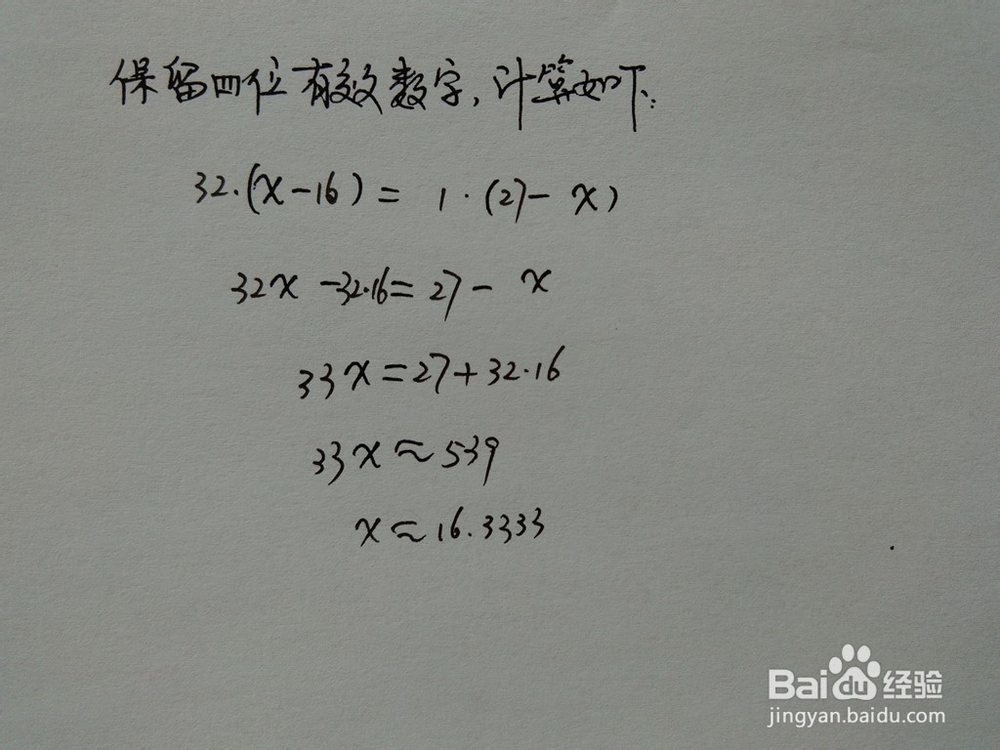 保留四位有效数字,计算如下:
32·(x-16)= 1·(27-x)
32x-32·16=27-x
33x=27+32·16
33x≈539
x≈16.3333
Baidu经验
jingyan.baidu.com